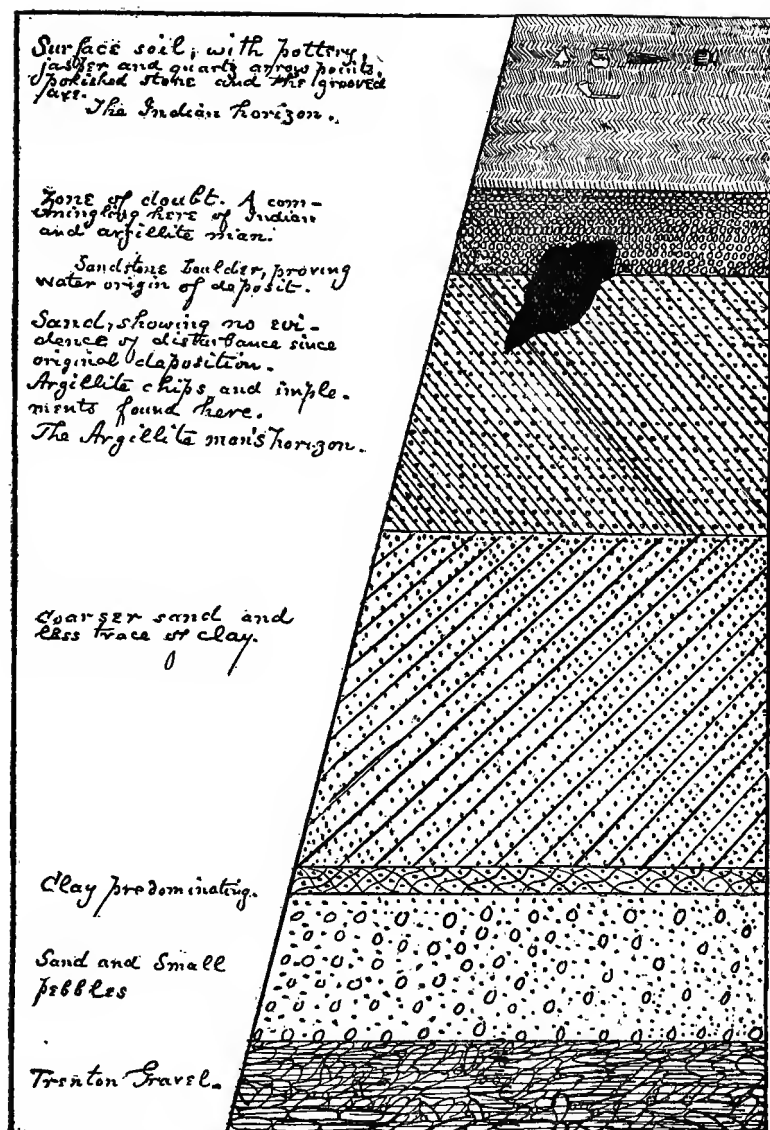 Surface soil, with pottery,
jasper and quartz arrow points,
polished stone and the grooved
axe.
The Indian horizon.
Zone of doubt. A com-
mingling here of Indian
and argillite man.
Sandstone boulder, proving
water origin of deposit.
Sand, showing no evi-
dence of disturbance since
original deposition.
Argillite chips and imple-
ments found here.
The Argillite man's horizon.
Coarser sand and
less trace of clay.
Clay predominating.
Sand and Small
pebbles
Trenton Gravel.